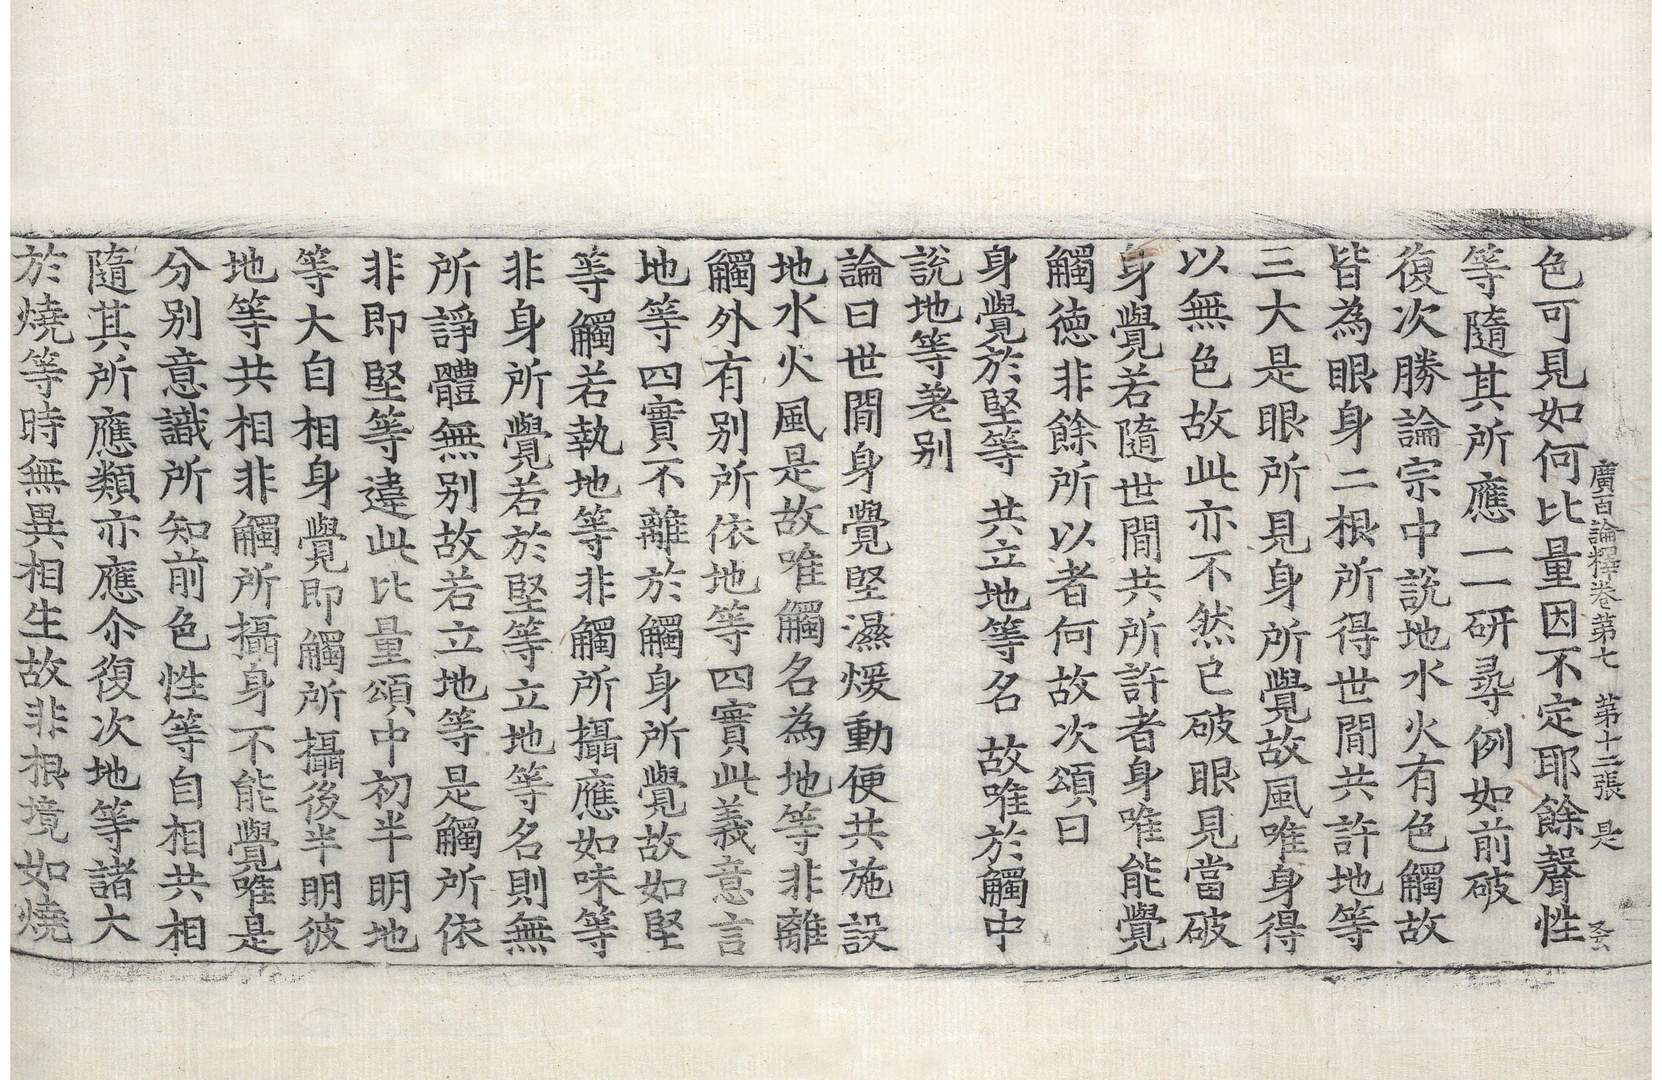 廣百論釋卷第七　第十二張　是
色可見如何比量因不定耶餘聲性
等隨其所應一一研尋例如前破
復次勝論宗中說地水火有色觸故
皆為眼身二根所得世間共許地等
三大是眼所見身所覺故風唯身得
以無色故此亦不然已破眼見當破
身覺若隨世間共所許者身唯能覺
觸德非餘所以者何故次頌曰
身覺於堅等　共立地等名　故唯於觸中
說地等差別
論曰世間身覺堅濕煖動便共施設
地水火風是故唯觸名為地等非離
觸外有別所依地等四實此義意言
地等四實不離於觸身所覺故如堅
等觸若執地等非觸所攝應如味等
非身所覺若於堅等立地等名則無
所諍體無別故若立地等是觸所依
非即堅等違此比量頌中初半明地
等大自相身覺即觸所攝後半明彼
地等共相非觸所攝身不能覺唯是
分別意識所知前色性等自相共相
隨其所應類亦應尒復次地等諸大
於燒等時無異相生故非根境如燒